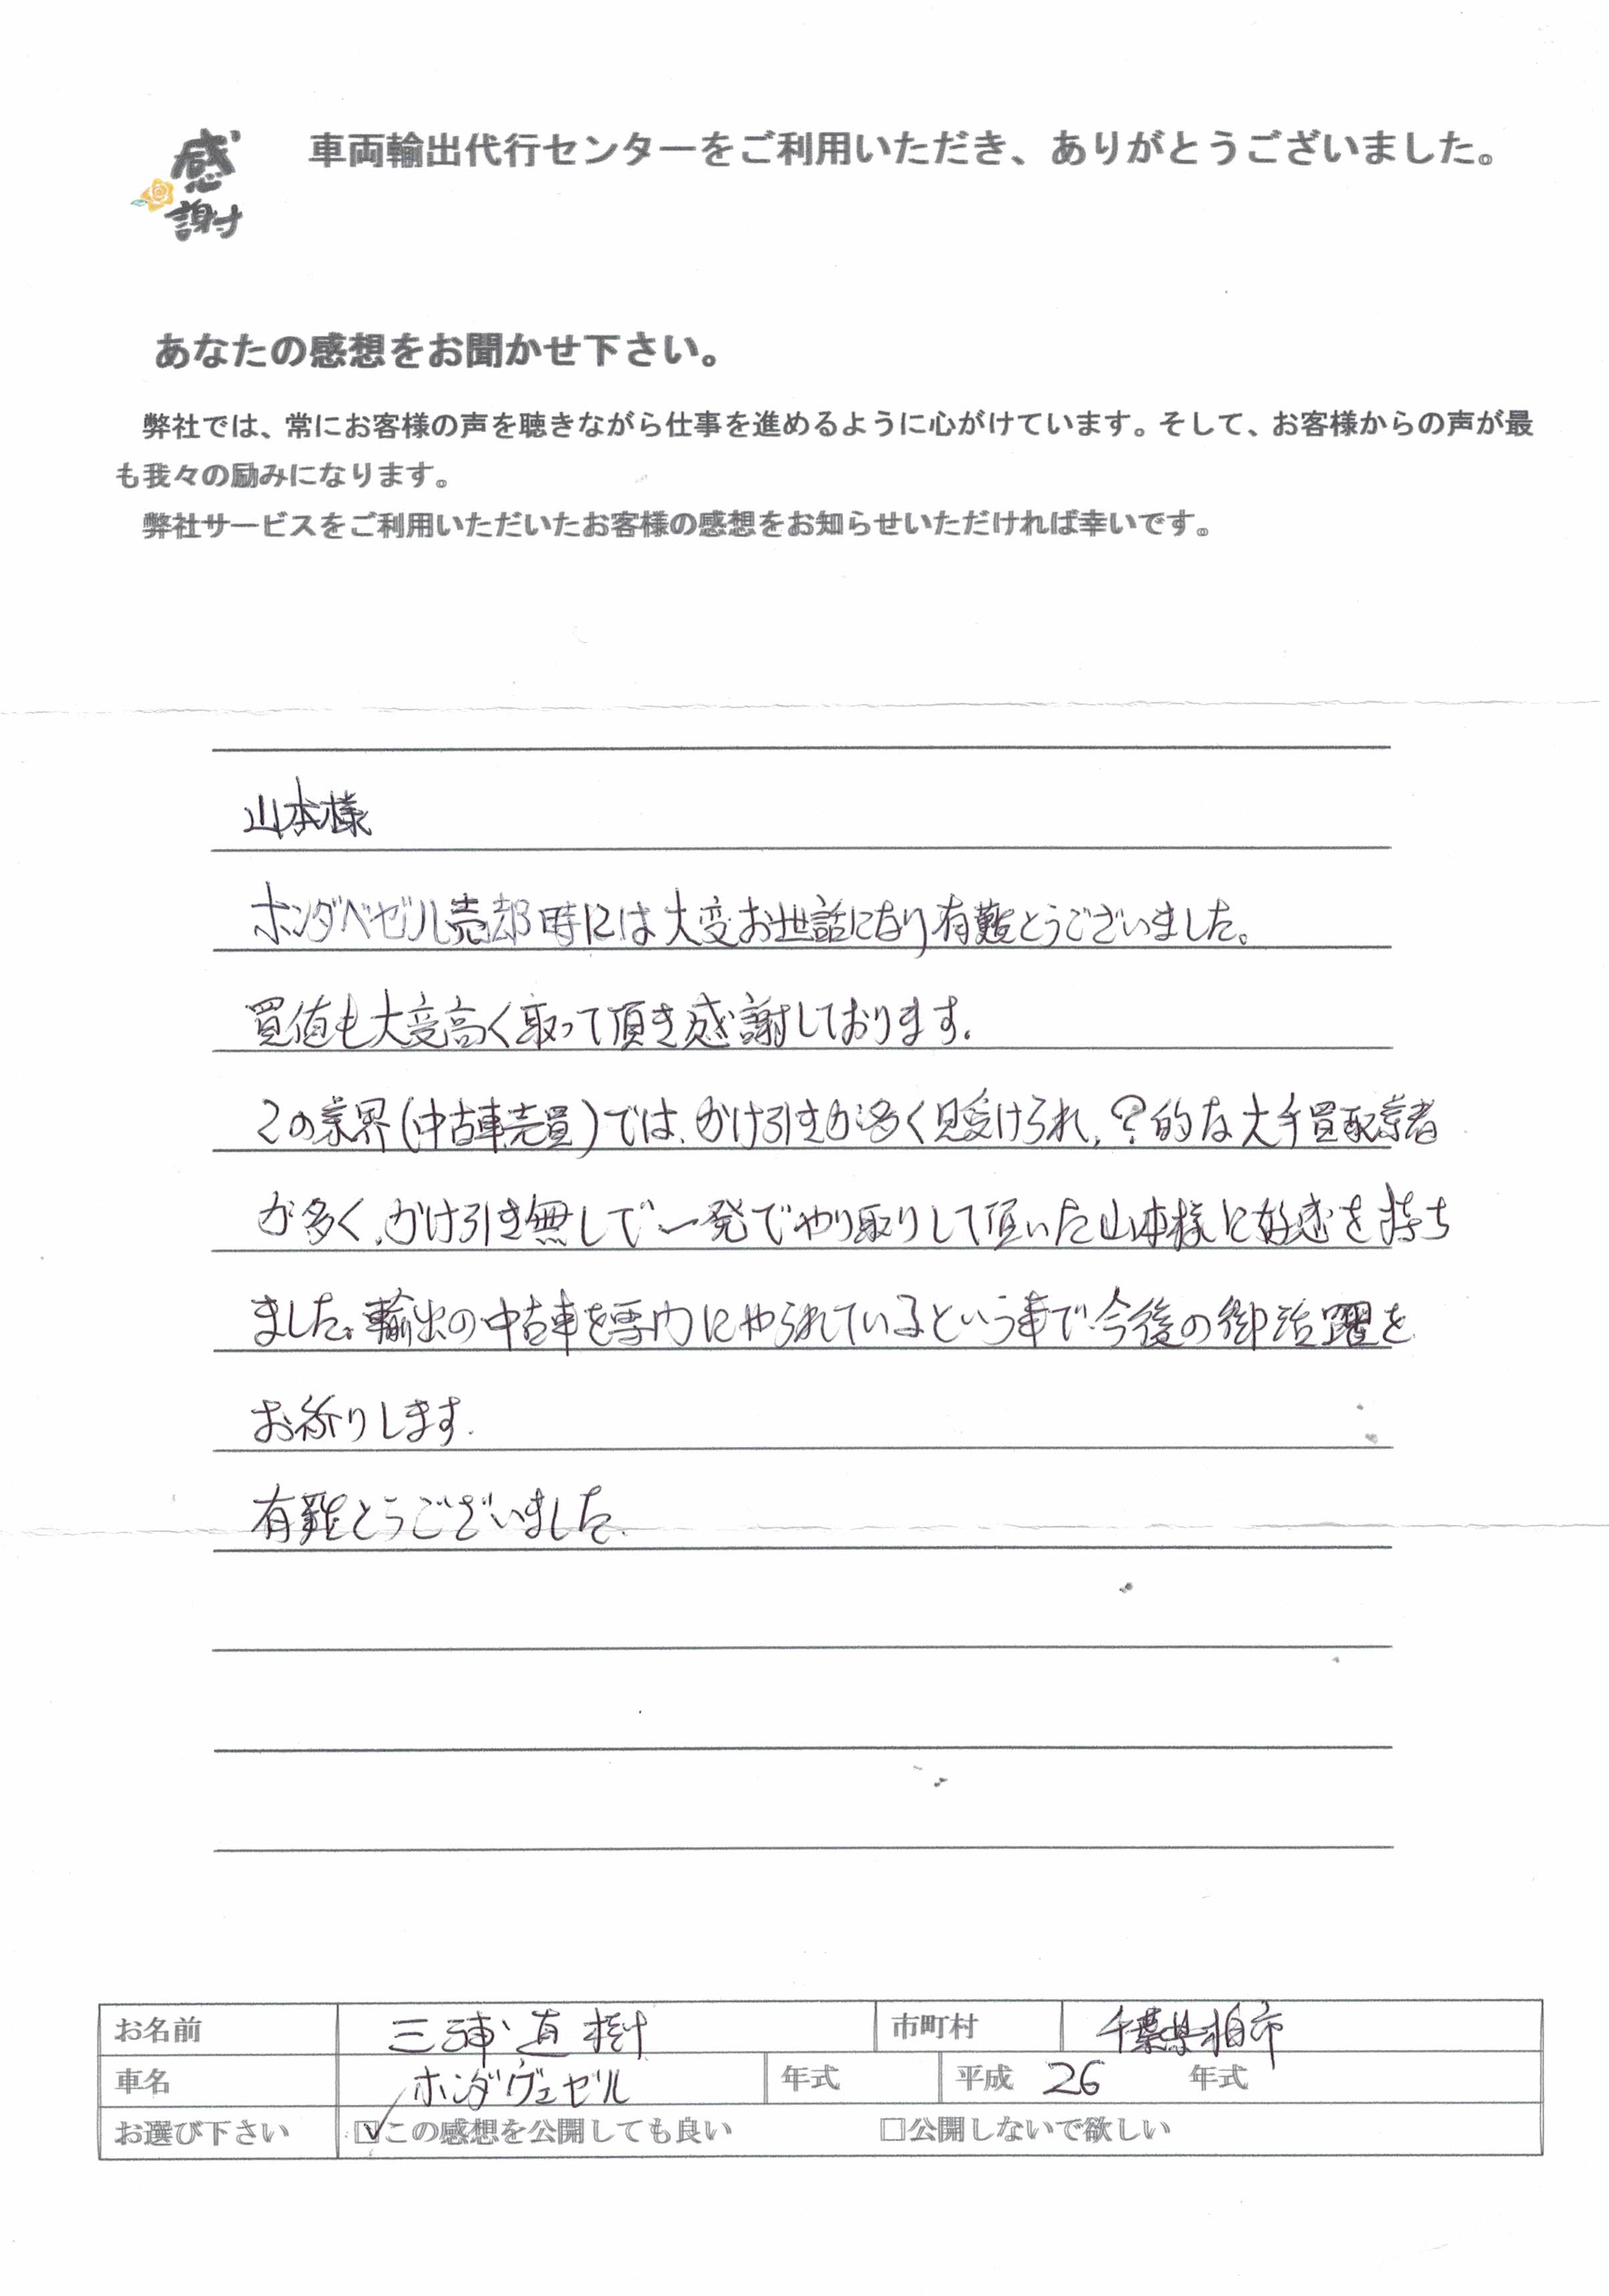 感謝
車両輸出代行センターをご利用いただき、ありがとうございました。
あなたの感想をお聞かせ下さい。
弊社では、常にお客様の声を聴きながら仕事を進めるように心がけています。そして、お客様からの声が最
も我々の励みになります。
弊社サービスをご利用いただいたお客様の感想をお知らせいただければ幸いです。
山本様
ホンダベゼル売却時には大変お世話になり有難とうございました。
買値も大変高く取って頂き感謝しております.
この業界(中古車売買)では、かけ引きが多く見受けられ、?的な大手買取業者
が多く、かけ引き無しで一発でやり取りして頂いた山本様に好感を持ち
ました。輸出の中古車を専門にやられているという事で今後の御活躍を
お祈りします.
有難とうございました.
お名前 三浦直樹 市町村 千葉県柏市
車名 ホンダヴェゼル 年式 平成 26 年式
お選び下さい ☑この感想を公開しても良い □公開しないで欲しい